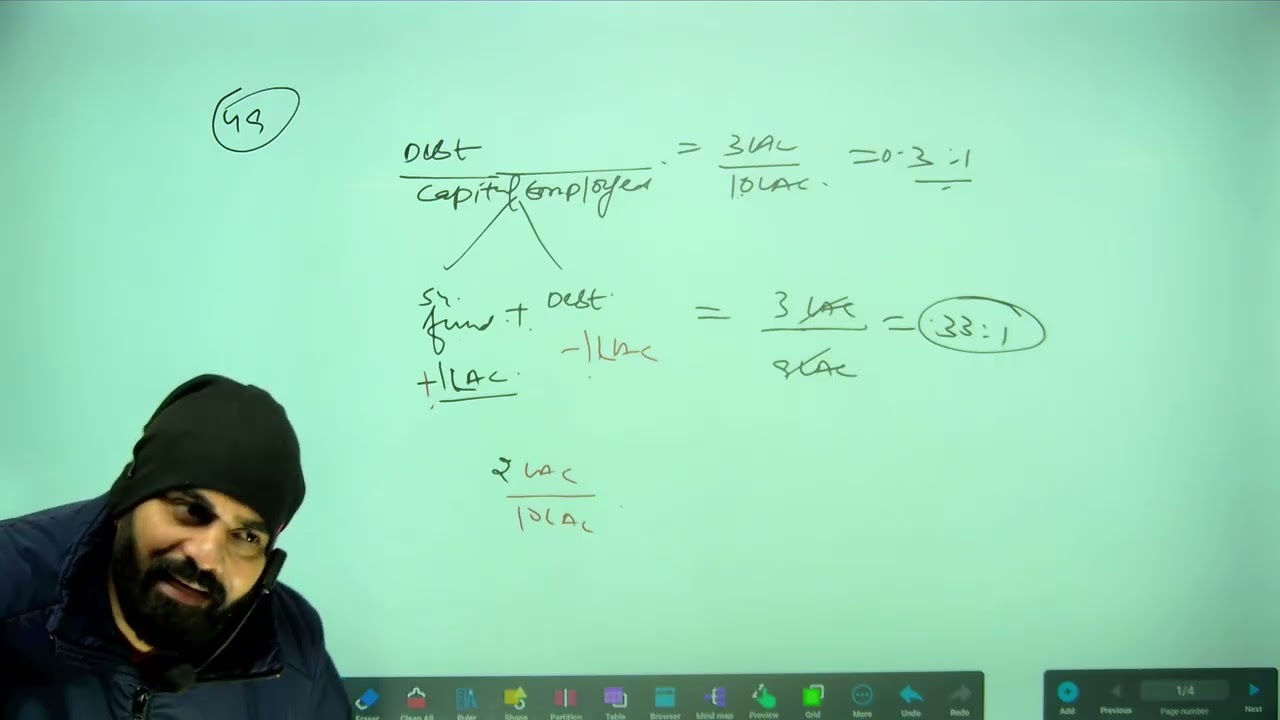 48
Debt = 3 LAC = 0.3:1
Capital Employed 10 LAC.
Sh. fund + Debt = 3 LAC = .33:1
9 LAC
+1 LAC -1 LAC
2 LAC
10 LAC
Eraser Clean All Ruler Shape Partition Table Browser Mind map Preview Grid More Undo Redo
Add Previous 1/4 Page number Next